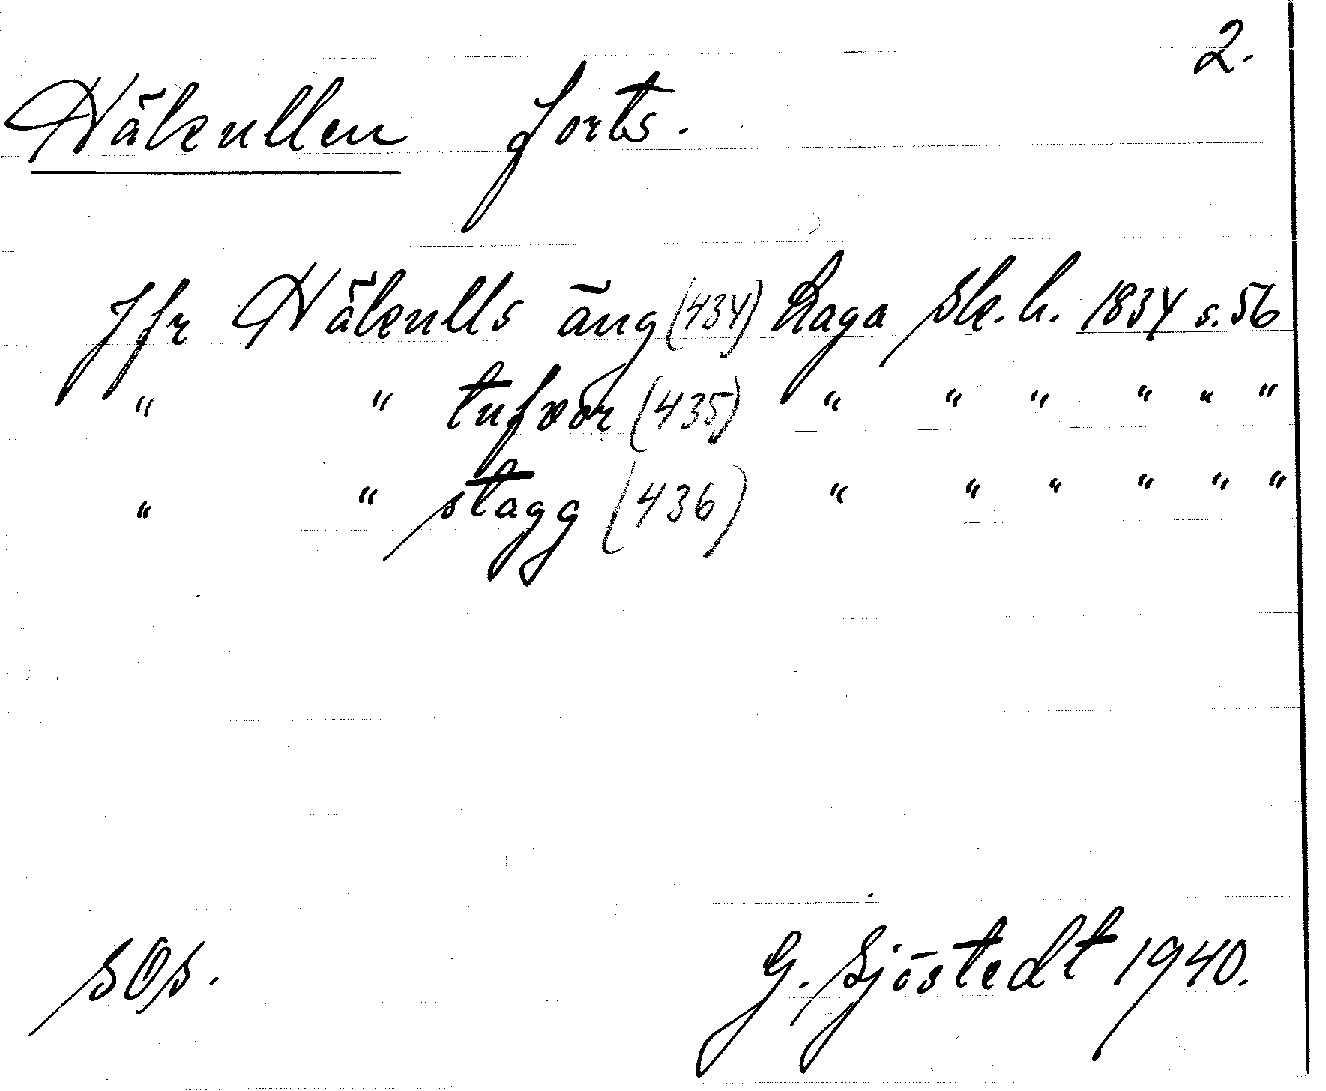 2.
Hälkullen forts.
Jfr Hälkulls äng (434) Laga Sk. h. 1834 s. 56
" " tufvor (435) " " " " " "
" " stagg (436) " " " " " "
SOS. G. Sjöstedt 1940.